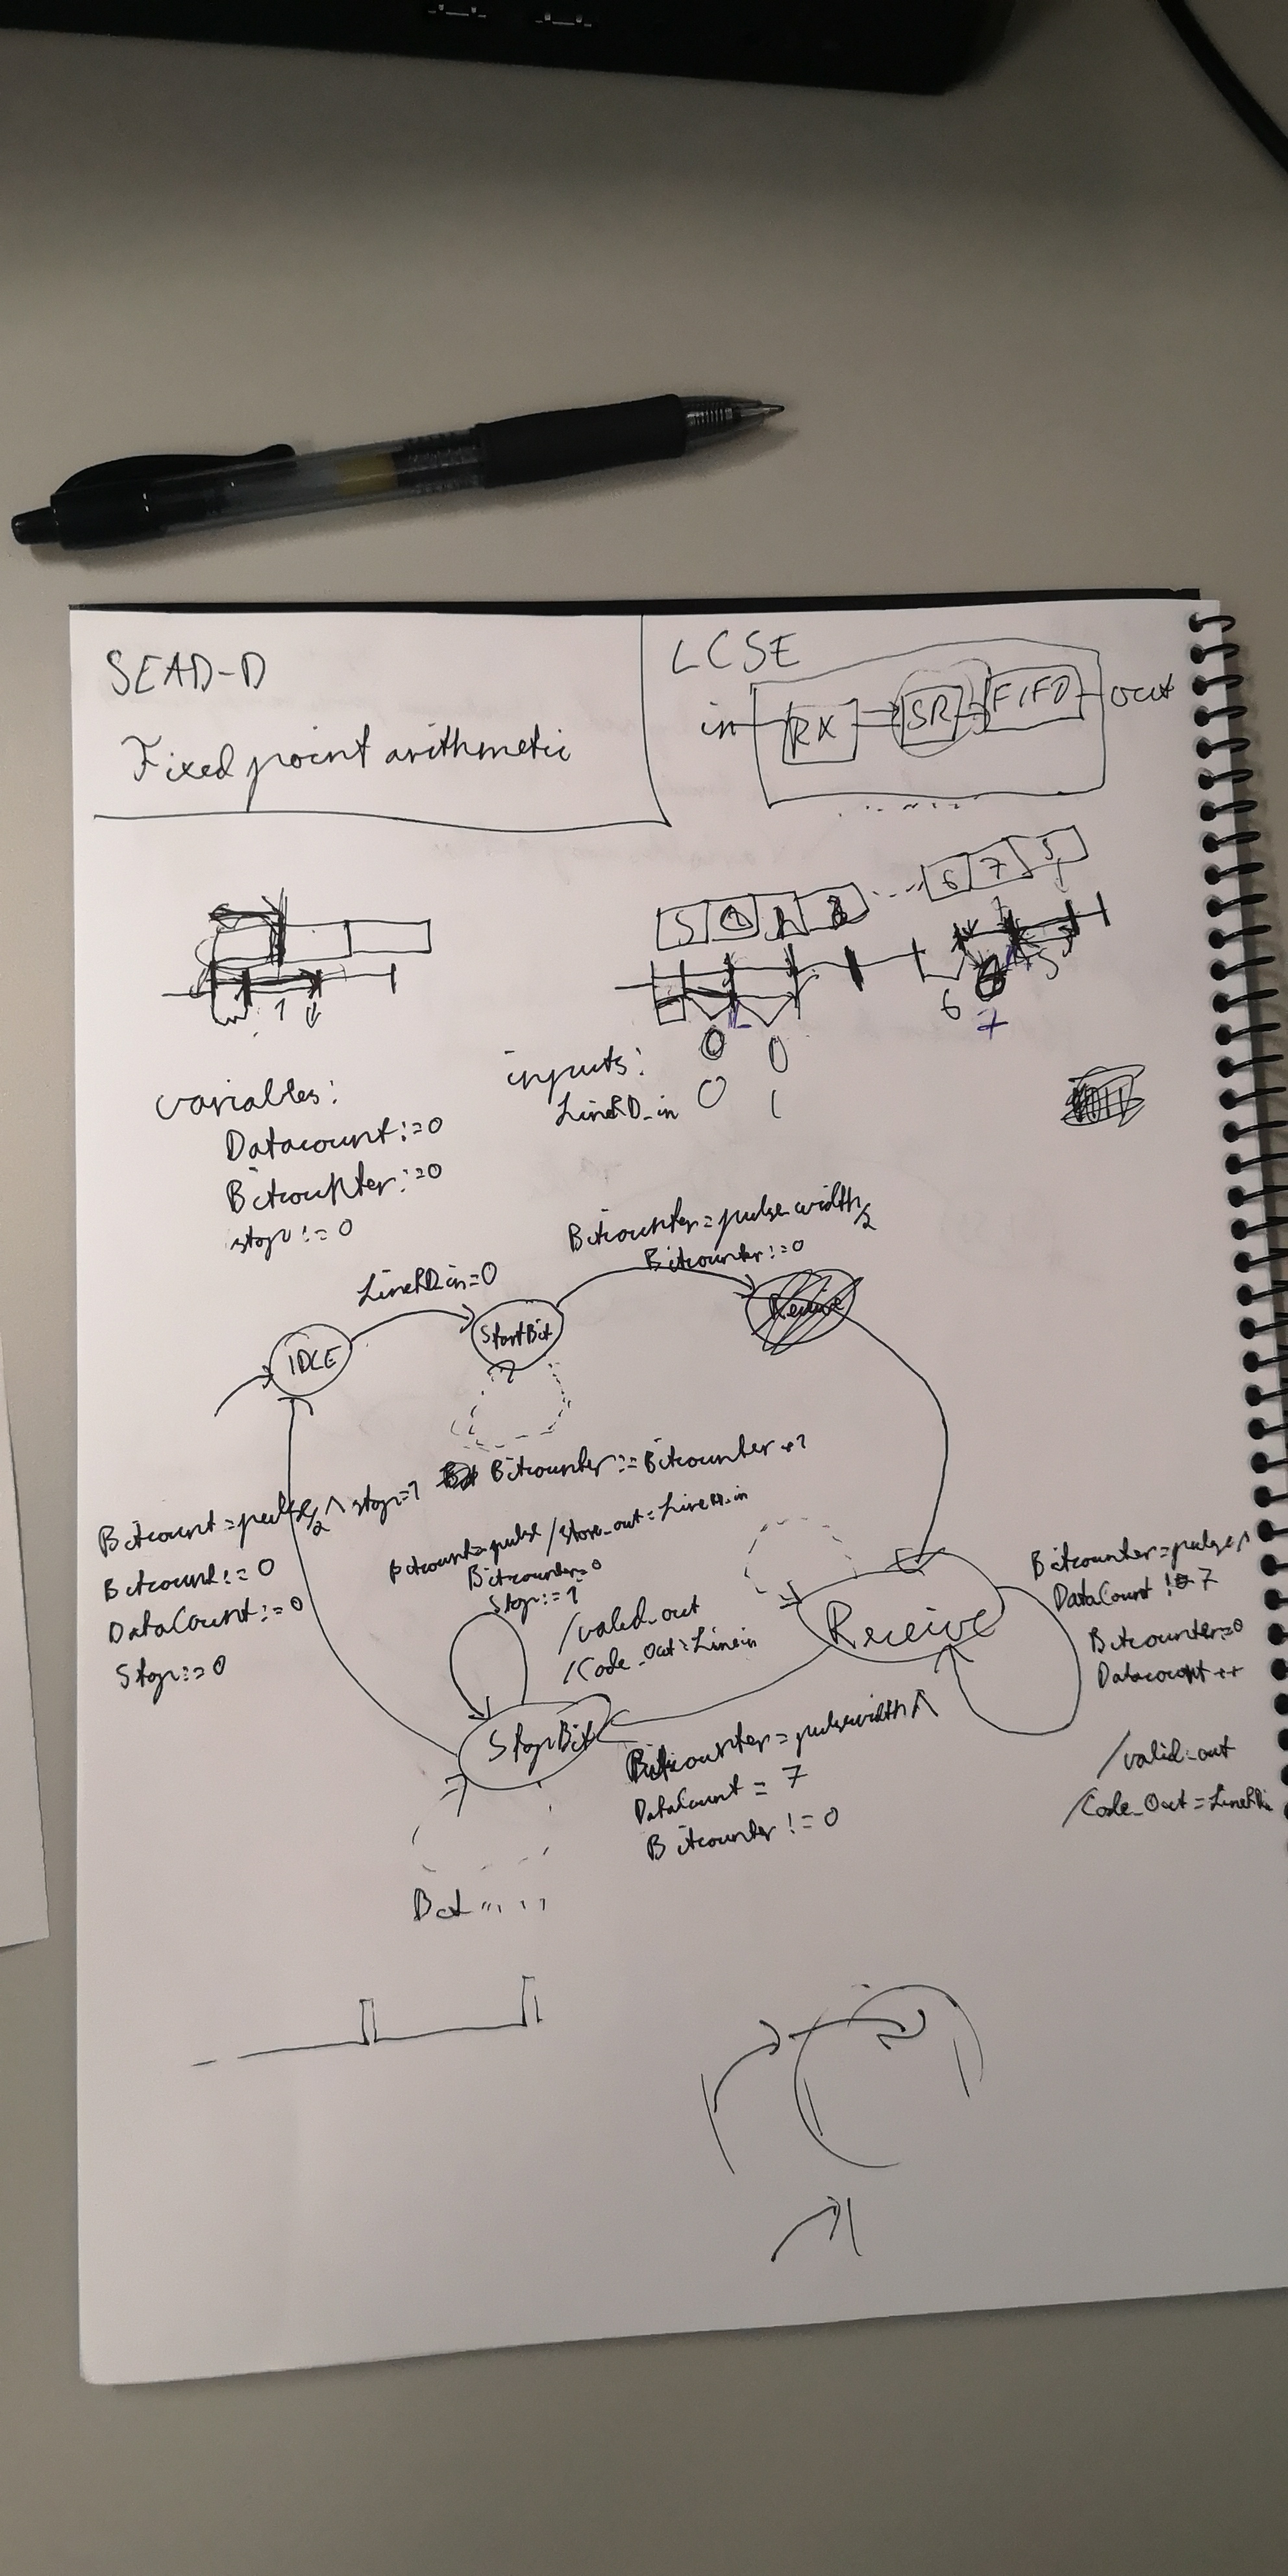 SEAD-D
Fixed point arithmetic
LCSE
in RX SR FIFO out
S 0 1 2 6 7 S
1
6 7 S
0 0
0 1
variables:
Datacount:=0
Bitcounter:=0
stop:=0
inputs:
LineRD_in
LineRD_in=0
Bitcounter=pulse_width/2
Bitcounter:=0
IDLE
StartBit
Receive
Bitcounter:=Bitcounter+1
Bitcount=pulse/2 ^ stop=1
Bitcount:=0
DataCount:=0
Stop:=0
Bitcount=pulse /store_out=LineRD_in
Bitcounter=0
Stop:=1
/valid_out
/Code_Out=Linein
Receive
Bitcounter=pulse ^
DataCount != 7
Bitcounter:=0
Datacount++
/valid_out
/Code_Out=LineRDin
StopBit
Bitcounter=pulsewidth ^
DataCount = 7
Bitcounter:=0